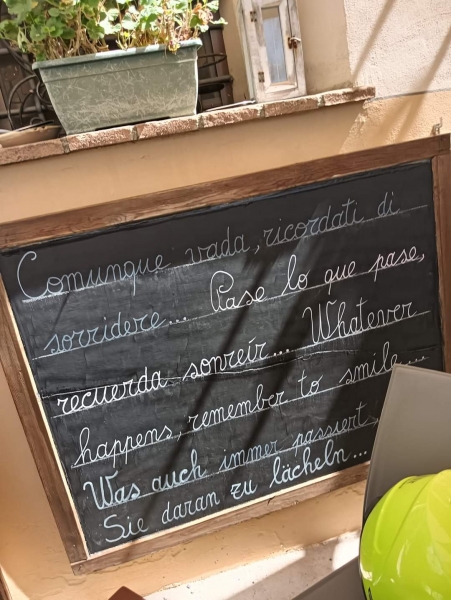 Comunque vada, ricordati di
sorridere... Pase lo que pase,
recuerda sonreír... Whatever
happens, remember to smile...
Was auch immer passiert,
Sie daran zu lächeln...